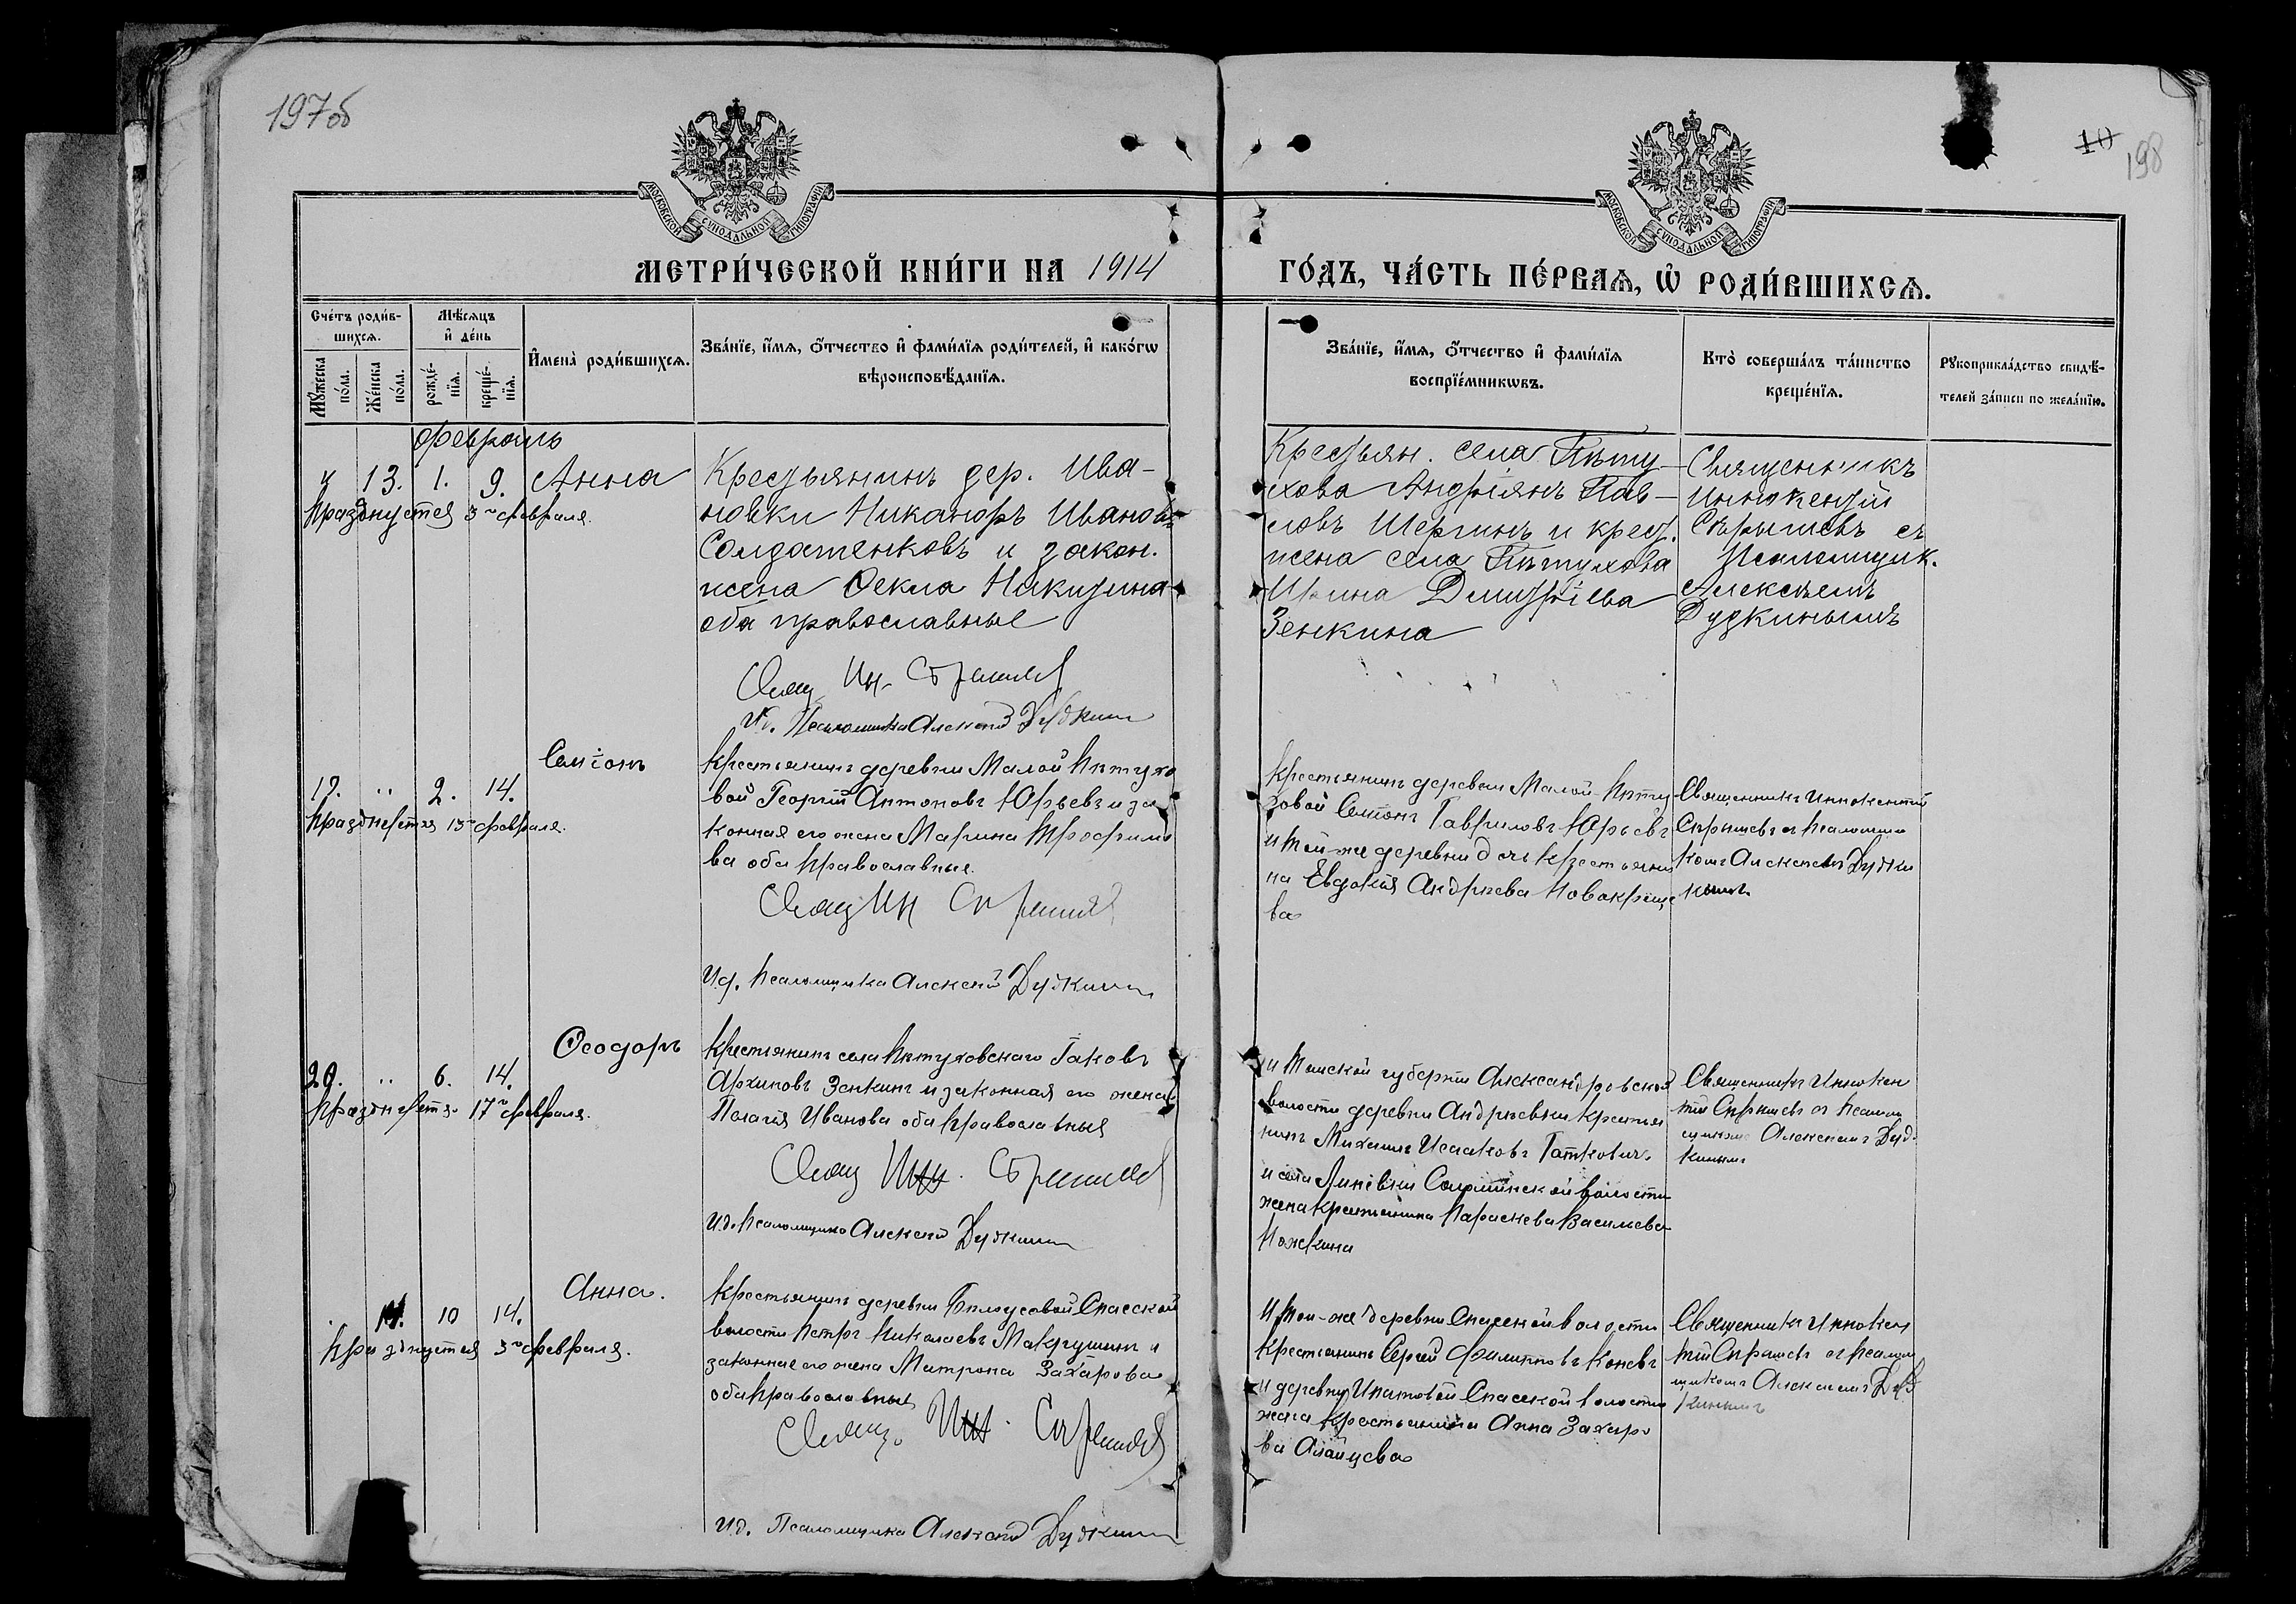 197об
10
198
МОСКОВСКОЙ СУНОДАЛЬНОЙ ТИПОГРАФІИ
МОСКОВСКОЙ СУНОДАЛЬНОЙ ТИПОГРАФІИ
МЕТРИ́ЧЕСКОЙ КНИ́ГИ НА 1914
ГО́ДЪ, ЧА́СТЬ ПЕ́РВАѦ, Ѡ҆ РОДИ́ВШИХСѦ.
Сче́тъ роди́в-
шихсѧ.
Мꙋ́жеска по́ла.
Же́нска по́ла.
Мѣ́сѧцъ
и҆ де́нь
рожде́-
нїѧ.
креще́-
нїѧ.
И҆мена̀ роди́вшихсѧ.
Зва́нїе, и҆́мѧ, ѻ҆́тчество и҆ фами́лїѧ роди́телей, и҆ како́гѡ
вѣроисповѣ́данїѧ.
Зва́нїе, и҆́мѧ, ѻ҆́тчество и҆ фами́лїѧ
воспрїе́мникѡвъ.
Кто̀ соверша́лъ та́инство
креще́нїѧ.
Рꙋкоприкла́дство свидѣ́-
телей за́писи по жела́нїю.
Февраль
13. 1. 9. Анна
Празднуется 3го февраля.
Крестьянинъ дер. Ива-
новки Никаноръ Ивановъ
Солдатенковъ и закон.
жена Ѳекла Никитина
оба православные
Свящ. Ин. Серышевъ
Псаломщика Алексей Дудкин
Крестьян. села Пѣту-
хова Андріянъ Пав-
ловъ Шергинъ и крест.
жена села Пѣтухова
Ирина Димитріева
Зенкина
Священникъ
Иннокентій
Сѣрышевъ съ
Псаломщик.
Алексѣемъ
Дудкинымъ
Симіонъ
19. " 2. 14.
Празднуется 15 февраля.
Крестьянинъ деревни Малой Пѣтухо
вой Георгій Антоновъ Юрьевъ и за
конная его жена Марина Трофимо
ва оба православные.
Свящ Ин Серышевъ
И.д. Псаломщика Алексей Дудкин
Крестьянинъ деревни Малой Пѣту
ховой Симіонъ Гавриловъ Юрьевъ
и той-же деревни дочь крестьяни
на Евдокія Андреева Новокреще
ва
Священникъ Иннокентій
Серышевъ съ псаломщи
комъ Алексеемъ Дудки
нымъ
Ѳеодоръ
20. " 6. 14.
Празднуется 17го февраля.
Крестьянинъ села Пѣтуховскаго Іаковъ
Архиповъ Зенкинъ и законная его жена
Пелагія Иванова оба православныя
Свящ Ин. Серышевъ
И.д. псаломщика Алексей Дудкин
и Томской губерніи Александровской
волости деревни Андреевки крестья
нинъ Михаилъ Исааковъ
и села
жена крестьянина Параскева Васильева
Ножкина
Священникъ Иннокен
тій Серышевъ съ псалом
щикомъ Алексеемъ Дуд
кинымъ
Анна.
14. 10 14.
Празднуется 3го февраля.
Крестьянинъ деревни Бѣлоусовой Спасской
волости Петръ Николаевъ Макрушинъ и
законная его жена Матрона Захарова
оба православные
Свящ. Ин. Серышевъ
И.д. Псаломщика Алексей Дудкин
И той-же деревни Спасской волости
крестьянинъ Сергей Филипповъ Коневъ
и деревни Ипатовой Спасской волости
жена крестьянина Анна Захаро
ва
Священникъ Иннокен
тій Серышевъ съ псалом
щикомъ Алексеемъ Дуд
кинымъ